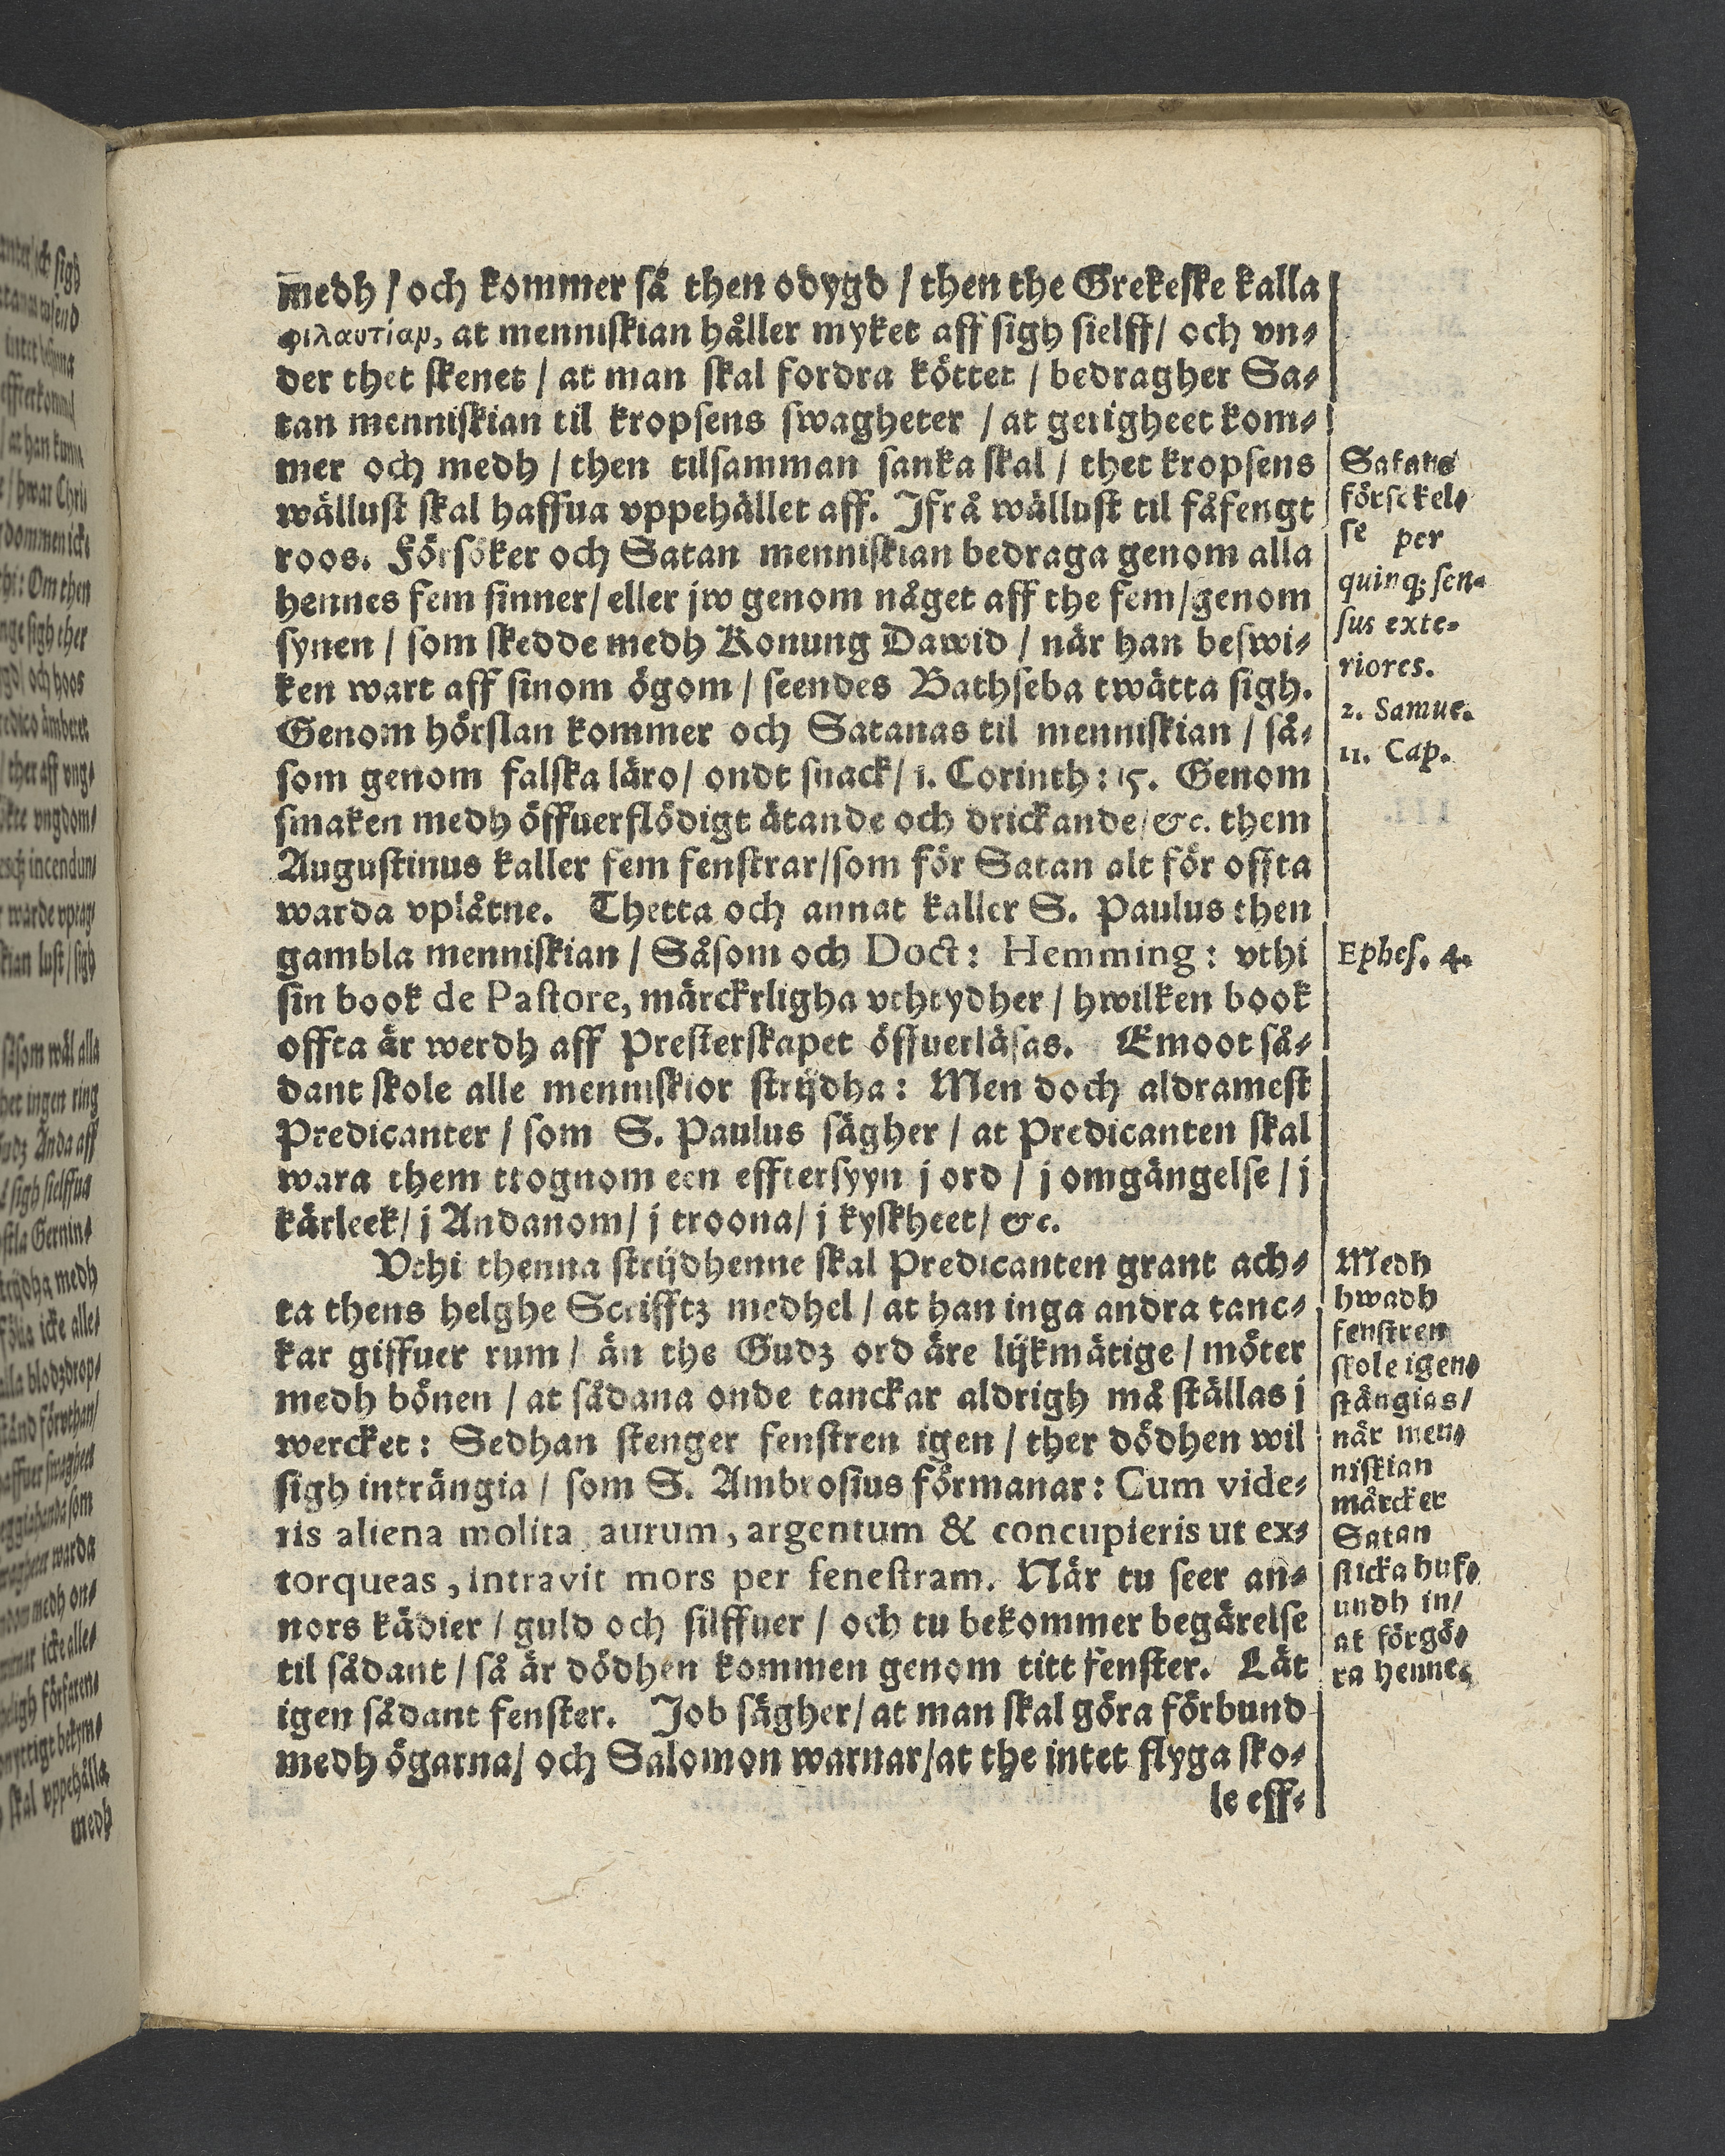 medh / och kommer så then odygd / then the Grekeske kalla
φιλαυτίαν, at menniskian håller myket aff sigh sielff / och vn-
der thet skenet / at man skal fordra köttet / bedragher Sa-
tan menniskian til kropsens swagheter / at getigheet kom-
mer och medh / then tilsamman sanka skal / thet kropsens
wällust skal haffua vppehället aff. Ifrå wällust til fåfengt
roos. Försöker och Satan menniskian bedraga genom alla
hennes fem sinner / eller jw genom någet aff the fem / genom
synen / som skedde medh Konung Dawid / när han beswi-
ken wart aff sinom ögom / seendes Bathseba twätta sigh.
Genom hörslan kommer och Satanas til menniskian / så-
som genom falska läro / ondt snack / 1. Corinth: 15. Genom
smaken medh öffuerflödigt ätande och drickande / &c. them
Augustinus kaller fem fenstrar / som för Satan alt för offta
warda vplåtne. Thetta och annat kaller S. Paulus then
gambla menniskian / Såsom och Doct: Hemming: vthi
sin book de Pastore, märckrligha vthtydher / hwilken book
offta är werdh aff Presterskapet öffuerläsas. Emoot så-
dant skole alle menniskior strijdha: Men doch aldramest
Predicanter / som S. Paulus sägher / at Predicanten skal
wara them trognom een efftersyyn j ord / j omgängelse / j
kärleek / j Andanom / j troona / j kyskheet / &c.
Vthi thenna strijdhenne skal Predicanten grant ach-
ta thens helghe Scrifftz medhel / at han inga andra tanc-
kar giffuer rum / än the Gudz ord äre lijkmätige / möter
medh bönen / at sådana onde tanckar aldrigh må ställas j
wercket: Sedhan stenger fenstren igen / ther dödhen wil
sigh inträngia / som S. Ambrosius förmanar: Cum vide-
ris aliena molita, aurum, argentum & concupieris ut ex-
torqueas, intravit mors per fenestram. När tu seer an-
nors kädier / guld och silffuer / och tu bekommer begärelse
til sådant / så är dödhen kommen genom titt fenster. Lät
igen sådant fenster. Job sägher / at man skal göra förbund
medh ögarna / och Salomon warnar / at the intet flyga sko-
le eff-
Satans
försökel-
se per
quinq; sen-
sus exte-
riores.
2. Samue.
11. Cap.
Ephes. 4.
Medh
hwadh
fenstren
skole igen-
stängias /
när men-
niskian
märcker
Satan
sticka huf-
uudh in /
at förgö-
ra henne.